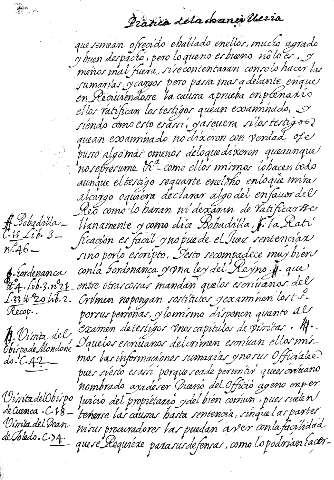 Pratica de la chancilleria
que se ayan ofrecido o hallado en ellos, mucho agrado
y buen despacho, pero lo que no es bueno no lo es, y
menos mal fuera, si se contentaran con solo hacer las
sumarias, y cargos pero pasa mas adelante, en que
en Reciviendose la causa aprueba en plenario
ellos ratifican los testigos que an examinado, y
siendo como esto es assi, ya se vera si los testigos
que an examinado no dixeron con verdad o se
puso algo mas o menos de lo que dixeron que aunque
no se presume como ellos mismos lo hacen todo
aunque el testigo se quarte en el dicho en lo que mira
al cargo o quiera declarar algo de en favor del
Reo como lo haran ni dexaran de ratificarse
llanamente y como dice Bobadilla, la Rati
ficacion es facil y no puede el Juez sentenciar
sino por lo escripto. y esto se compadece muy bien
con la hordenanza y una ley del Reyno que
entre otras cosas mandan que los escrivanos del
Crimen no pongan sostitutos y examinen los ts.
por sus personas, y lo mismo disponen quanto al
examen de testigos unos capitulos de visitas.
Aquellos escrivanos del crimen escrivan ellos mis
mos las informaciones sumarias y no sus Officiales.
pues si esto es assi porque se a de permitir que escrivano
nombrado an de ser Dueño del Officio y en
juicio del propietario y del bien comun, pues suelen
tenerse las causas hasta sentencia, sin que las partes
ni sus procuradores las puedan aver con la facilidad
que se Requiere para sus defensas, como lo podrian hacer
Bobadilla.
Lib. 3
n. 46
hordenanza
Lib. 3. n. 28
Lib. 2.
Recop.
Visita del
Obispo de Mondoñe
do. C. 42
Visita del Obispo
de Cuenca. C. 18
Visita del Dean
de Toledo. C. 74